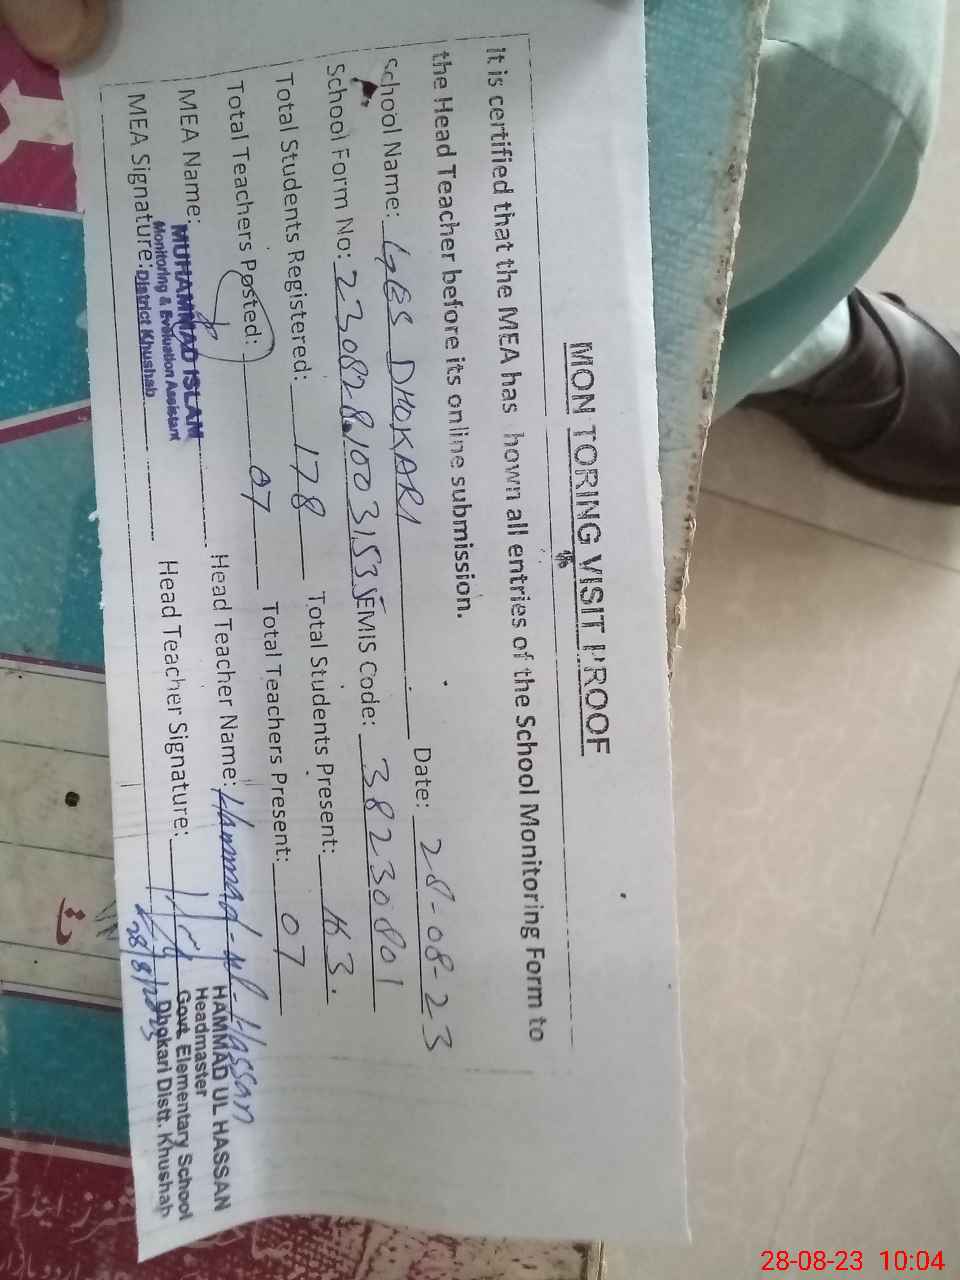 MON TORING VISIT PROOF
It is certified that the MEA has hown all entries of the School Monitoring Form to
the Head Teacher before its online submission.
School Name: GES DHOKARI Date: 28-08-23
School Form No: EMIS Code: 38230801
Total Students Registered: 178 Total Students Present:
Total Teachers Posted: 07 Total Teachers Present: 07
MEA Name: MUHAMMAD ISLAM Head Teacher Name: Hammad-ul-Hassan
Monitoring & Evaluation Assistant
MEA Signature: District Khushab Head Teacher Signature:
HAMMAD UL HASSAN
Headmaster
Govt. Elementary School
Dhokari Distt. Khushab
28/8/2023
28-08-23 10:04